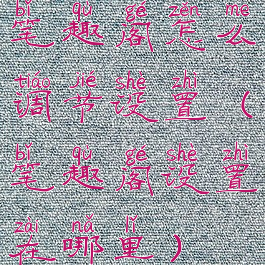 bǐ qù gé zěn me
笔趣阁怎么
tiáo jié shè zhì
调节设置(
bǐ qù gé shè zhì
笔趣阁设置
zài nǎ lǐ
在哪里)